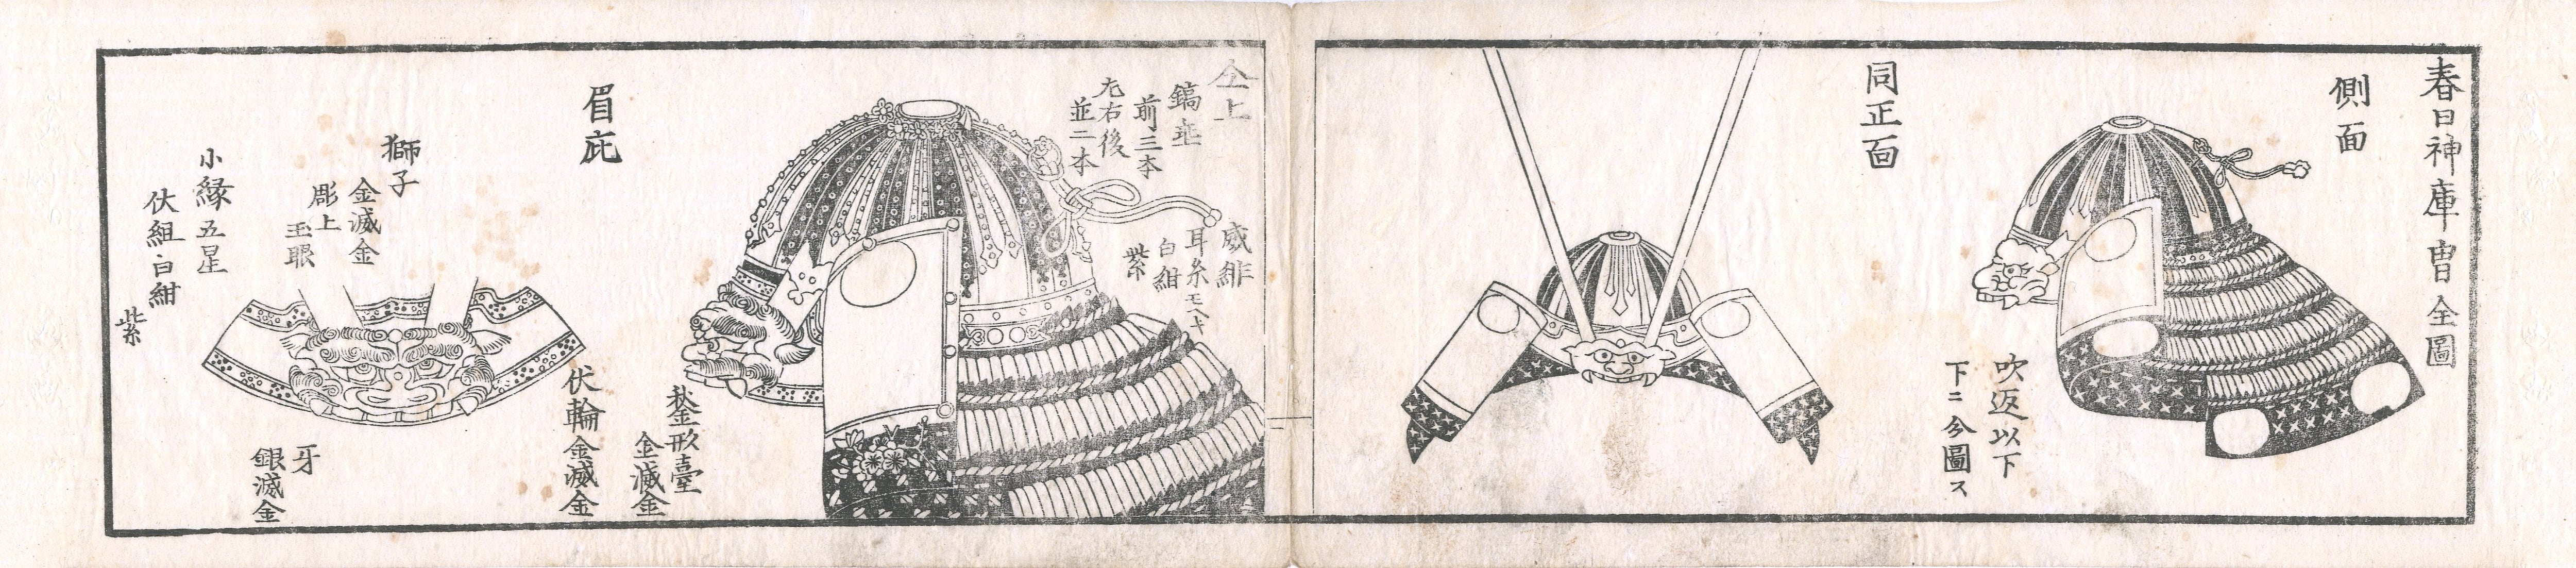 春日神庫冑全圖
側面
吹返以下
下ニ分圖ス
同正面
仝上
鎬垂
前三本
左右後
並二本
威緋
耳糸モヘキ
白紺
紫
眉庇
鍬形臺
金滅金
伏輪金滅金
獅子
金滅金
彫上
玉眼
牙
銀滅金
小縁五星
伏組白紺
紫